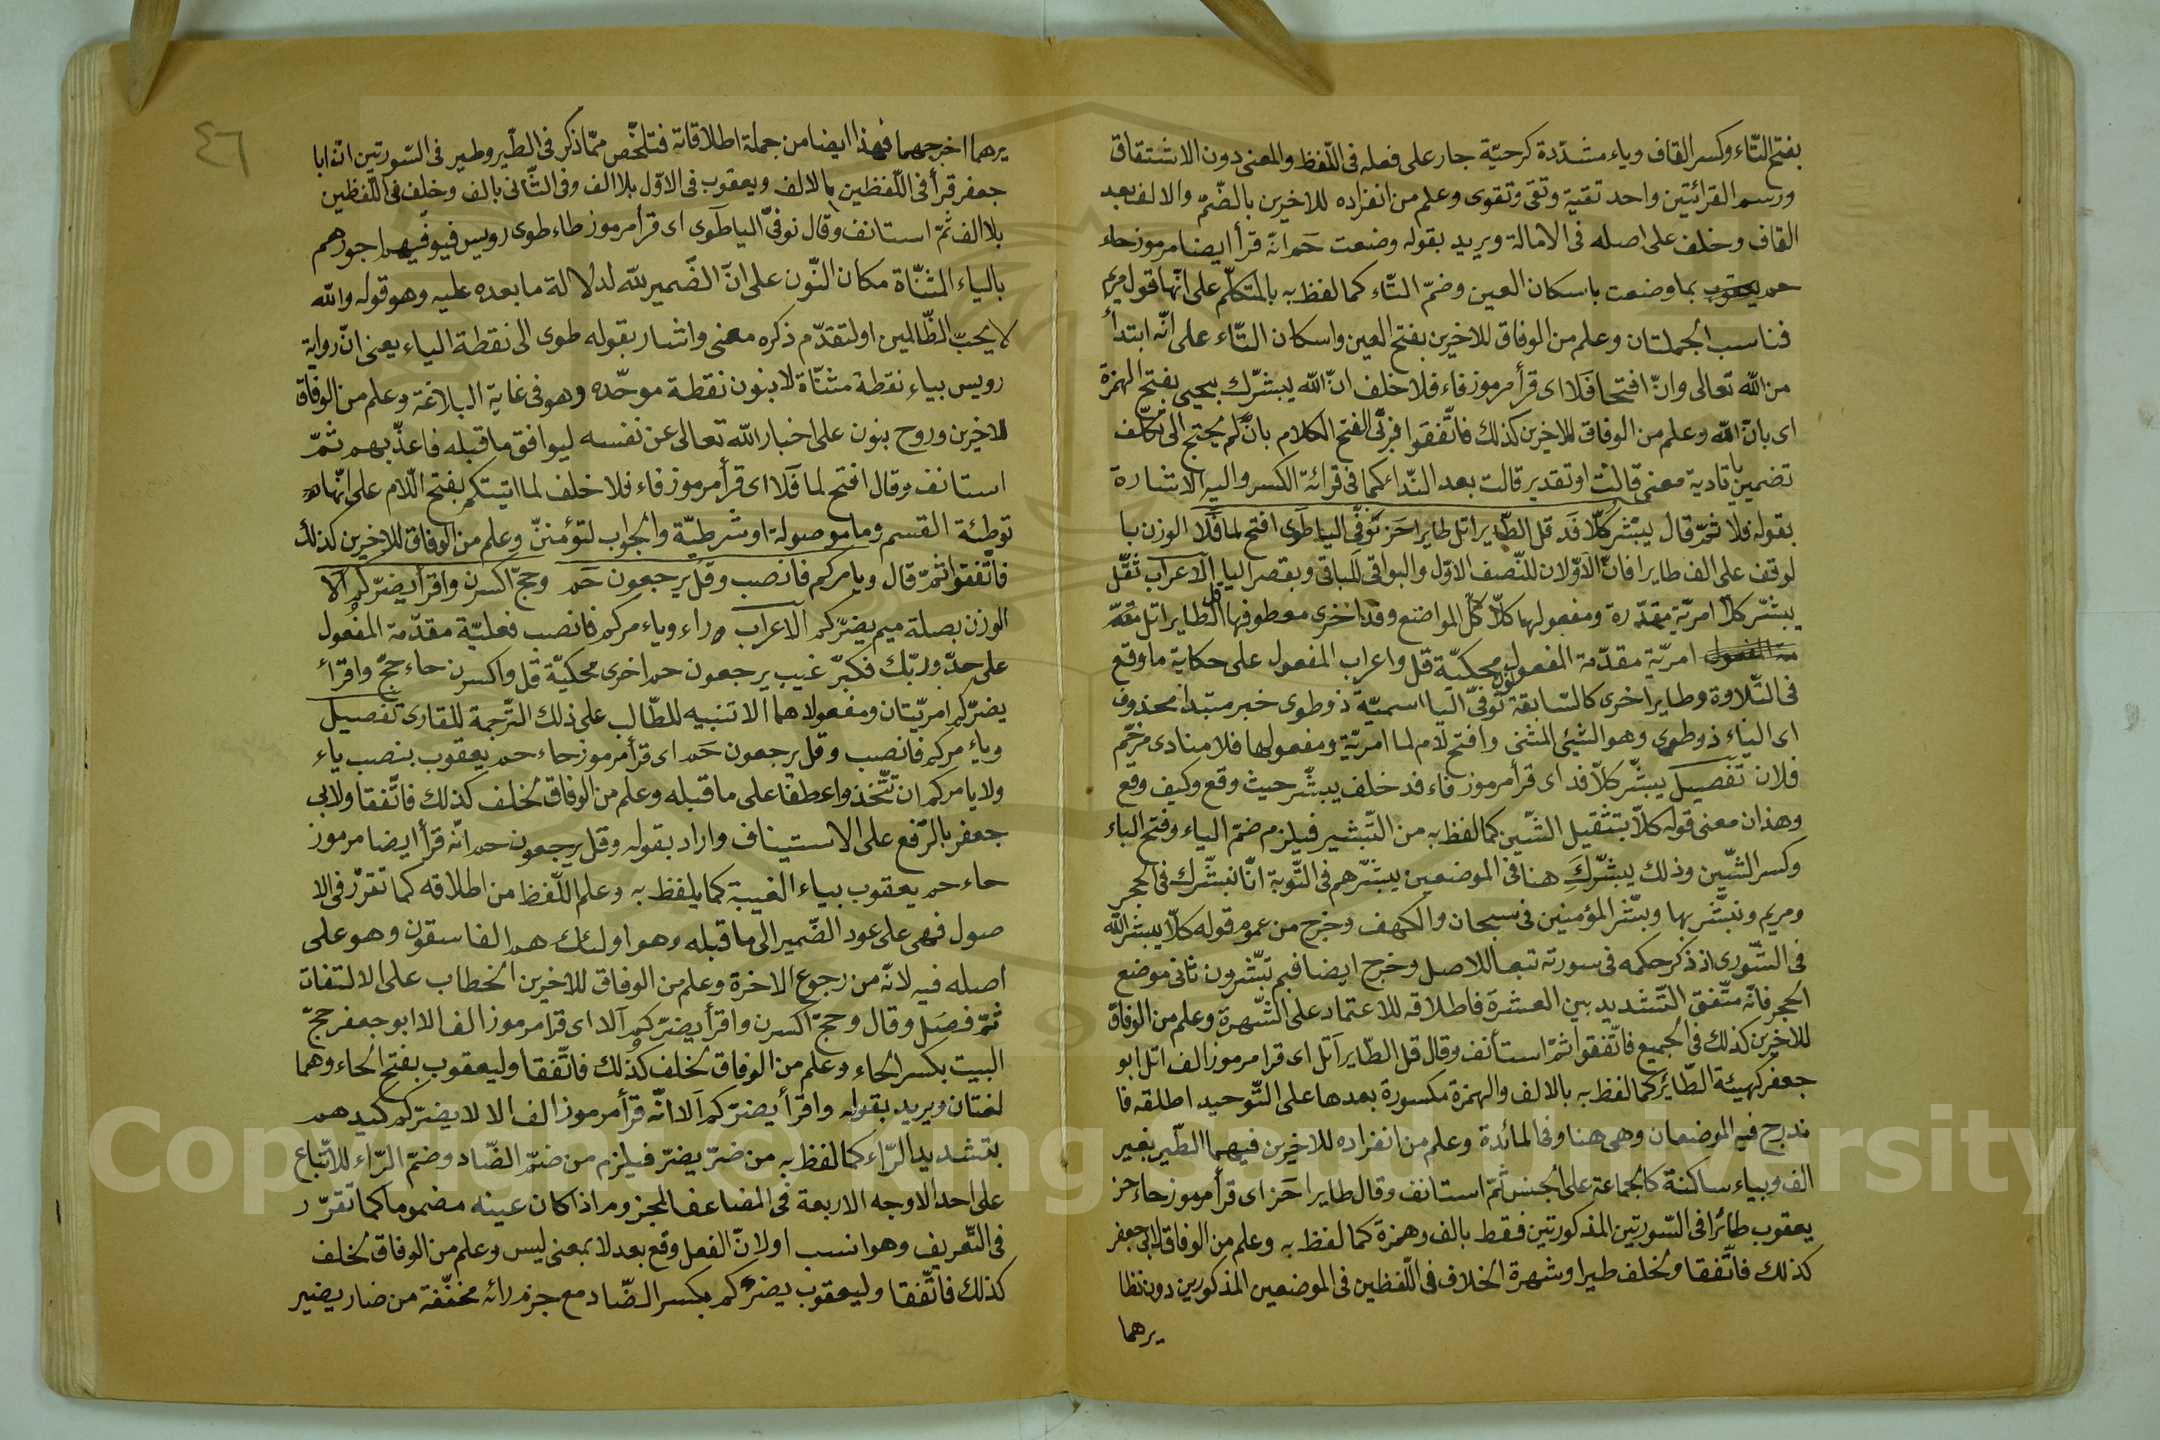 بفتح التّاء وكسر القاف وياء مشدّدة كرحيّة جار على فعله فى اللّفظ والمعنى دون الاشتقاق
ورسم القرائتين واحد تقية وتقى وتقوى وعلم من انفراده للاخرين بالضّمّ والالف بعد
القاف وخلف على اصله فى الامالة ويريد بقوله وضعت حَم انّه قرأ ايضا مرموز حاء
حم يعقوب بما وضعت باسكان العين وضمّ التّاء كما لفظ به بالمتكلّم على انّها قول مريم
فناسب الجملتان وعلم من الوفاق للاخرين بفتح العين واسكان التّاء على انّه ابتدأ
من الله تعالى وانّ افتحا فَلا اى قرأ مرموز فاء فلا خلف انّ الله يبشّرك بيحيى بفتح الهمزة
اى بانّ الله وعلم من الوفاق للاخرين كذلك فاتّفقوا الفتح الكلام بانّ لم يحتج الى تكلّف
تضمين يا تادية معنى قالت او تقدير قالت بعد النّداء كما فى قرائة الكسر واليه الاشارة
بقوله فلا ثمّ قال يبشر كلّا فَد قل الطّاير اتل طايرا حَز نوفّى اليا طَوى افتح لما فَلا الوزن با
لوقف على الف طايرا فانّ الاوّلان للنّصف الاوّل والبواقى للباقى وبقصر اليا الاعراب ثقّل
يبشّر كلّا امريّة مقدّرة ومفعولها كلّا كلّ المواضع وفد اخرى معطوفها قل الطاير اتل
امريّة مقدّمة المفعول محكيّة قل واعراب المفعول على حكاية ما وقع
فى التّلاوة وطايرا اخرى كالسّابقة نوفّى اليا اسميّة ذو طوى خبر مبتدا محذوف
اى الياء ذو طوى وهو الشّئ المثنى وافتح لام لما امريّة ومفعولها فلا منادى مرخّم
فلان تفصيل يبشّر كلّا فد اى قرأ مرموز فاء فد خلف يبشّر حيث وقع وكيف وقع
وهذان معنى قوله كلّا بتثقيل الشّين كما لفظ به من التّبشير فيلزم ضمّ الياء وفتح الباء
وكسر الشّين وذلك يبشّركَ هنا فى الموضعين يبشّرهم فى التّوبة انّا نبشّرك فى الحجر
ومريم ونبشّر بها وبشّر المؤمنين فى سبحان والكهف وخرج من عموم قوله كلّا يبشر الله
فى الشّورى اذ ذكر حكمه فى سورته تبعا للاصل وخرج ايضا فبم تبشّرون ثانى موضع
الحجر فانّه متّفق التّشديد بين العشرة فاطلاقه للاعتماد على الشّهرة وعلم من الوفاق
للاخرين كذلك فى الجميع فاتّفقوا ثمّ استأنف وقال قل الطّاير اتل اى قرا مرموز الف اتل ابو
جعفر كهيئة الطّائر كما لفظ به بالالف والهمزة مكسورة بعدها على التّوحيد اطلقه فا
ندرج فيه الموضعان وهى هنا وفى المائدة وعلم من انفراده للاخرين فيهما الطّير بغير
الف وبياء ساكنة كالجماعة على الجنس ثمّ استانف وقال طايرا حَز اى قرأ مرموز حاء حز
يعقوب طائرا فى السّورتين المذكورتين فقط بالف وهمزة كما لفظ به وعلم من الوفاق لابى جعفر
كذلك فاتّفقا ولخلف طيرا وشهرة الخلاف فى اللّفظين فى الموضعين المذكورين دون نظا
يرهما
٤٦
يرهما اخرجهما فهذا ايضا من جملة اطلاقاته فتلخّص ممّا ذكر فى الطّير وطير فى السّورتين انّ ابا
جعفر قرأ فى اللّفظين بالالف ويعقوب فى الاوّل بلا الف وفى الثّانى بالف وخلف فى اللّفظين
بلا الف ثمّ استانف وقال نوفّى اليا طَوى اى قرأ مرموز طاء طوى رويس فيوفّيهم اجورهم
بالياء المثنّاة مكان النّون على انّ الضّمير لله لدلالة ما بعده عليه وهو قوله والله
لا يحبّ الظّالمين او لتقدّم ذكره معنى واشار بقوله طوى الى نقطة الياء يعنى انّ رواية
رويس بياء نقطة مثنّاة لا بنون نقطة موحّده وهو فى غاية البلاغة وعلم من الوفاق
للاخرين وروح بنون على اخبار الله تعالى عن نفسه ليوافق ما قبله فاعذّبهم ثمّ
استانف وقال افتح لما فَلا اى قرأ مرموز فاء فلا خلف لما اتيتكم بفتح اللّام على انّها
توطئة القسم وما موصولة او شرطيّة والجواب لتؤمننّ وعلم من الوفاق للاخرين كذلك
فاتّفقوا ثمّ قال ويامركم فانصب وقل يرجعون حَم وحجّ اكسرن واقرأ يضرّكم الا
الوزن بصلة ميم يضرّكم الاعراب وراء وياء مركم فانصب فعليّة مقدّمة المفعول
على حدّ وربّك فكبّر غيب يرجعون حم اخرى محكيّة قل واكسرن حاء حجّ واقرأ
يضرّكم امريّتان ومفعولاهما الا تنبيه للطّالب على ذلك التّرجمة للقارى تفصيل
وياء مركم فانصب وقل يرجعون حَم اى قرأ مرموز حاء حم يعقوب بنصب ياء
ولا يامركم ان تتّخذوا عطفا على ما قبله وعلم من الوفاق لخلف كذلك فاتّفقا ولابى
جعفر بالرّفع على الاستيناف واراد بقوله وقل يرجعون حم انّه قرأ ايضا مرموز
حاء حم يعقوب بياء الغيبة كما يلفظ به وعلم اللّفظ من اطلاقه كما تقرّر فى الا
صول فهى على عود الضّمير الى ما قبله وهو اولئك هم الفاسقون وهو على
اصله فيه لانّه من رجوع الاخرة وعلم من الوفاق للاخرين الخطاب على الالتفات
ثمّ فصل وقال وحجّ اكسرن واقرأ يضرّكم الا اى قرا مرموز الف الا ابو جعفر حجّ
البيت بكسر الحاء وعلم من الوفاق لخلف كذلك فاتّفقا وليعقوب بفتح الحاء وهما
لغتان ويريد بقوله واقرأ يضرّكم الا انّه قرأ مرموز الف الا لا يضرّكم كيدهم
بتشديد الرّاء كما لفظ به من ضرّ يضرّ فيلزم من ضمّ الضّاد وضمّ الرّاء للاتّباع
على احد الاوجه الاربعة فى المضاعف المجزوم اذا كان عينه مضموما كما تقرّر
فى التّعريف وهو انسب او لانّ الفعل وقع بعد لا بمعنى ليس وعلم من الوفاق لخلف
كذلك فاتّفقا وليعقوب يضركم بكسر الضّاد مع جزم رائه مخفّفة من ضار يضير
Copyright © King Saud University